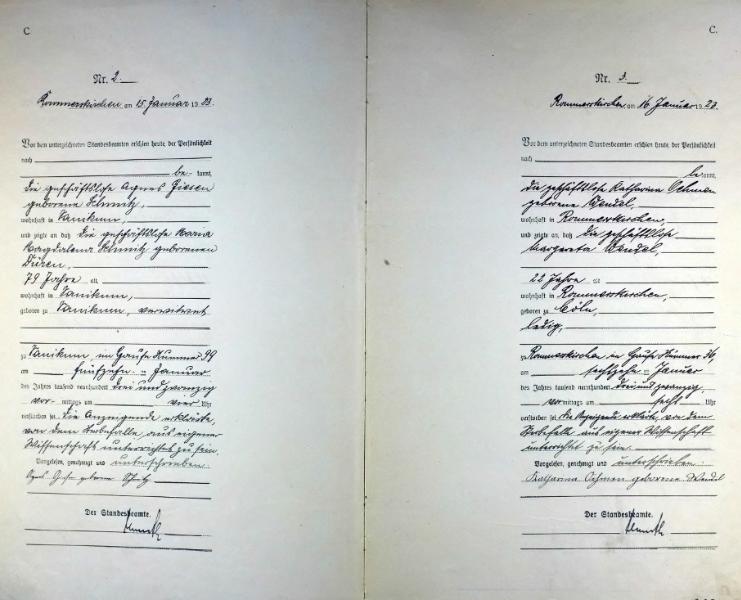 C
Nr. 2
Rommerskirchen am 15. Januar 1923.
Vor dem unterzeichneten Standesbeamten erschien heute, der Persönlichkeit
nach
be- kannt,
die geschäftslose Agnes Giesen
geborene Schmitz,
wohnhaft in Vanikum,
und zeigte an daß die geschäftslose Maria
Magdalena Schmitz geborenen
Düren,
79 Jahre alt
wohnhaft in Vanikum,
geboren zu Vanikum, verwitwet
zu Vanikum, im Hause Nummer 99
am fünfzehn = Januar
des Jahres tausend neunhundert drei und zwanzig
vor- mittags um vier Uhr
verstorben sei. Die Anzeigende erklärte,
von dem Sterbefalle, aus eigener
Wissenschaft unterrichtet zu sein.
Vorgelesen, genehmigt und unterschrieben.
Agnes Giesen geborene Schmitz
Der Standesbeamte.
C.
Nr. 3.
Rommerskirchen am 16. Januar 1923.
Vor dem unterzeichneten Standesbeamten erschien heute, der Persönlichkeit
nach
be kannt,
die geschäftslose Katharina Oehmen
geborene Wendel,
wohnhaft in Rommerskirchen,
und zeigte an, daß die geschäftslose
Margareta Wendel,
22 Jahre alt
wohnhaft in Rommerskirchen,
geboren zu Cöln,
ledig,
zu Rommerskirchen im Hause Nummer 36,
am sechzehn = Januar
des Jahres tausend neunhundert drei und zwanzig,
vor mittags um sechs Uhr
verstorben sei. Die Anzeigende erklärte, von dem
Sterbefalle aus eigener Wissenschaft
unterrichtet zu sein.
Vorgelesen, genehmigt und unterschrieben.
Katharina Oehmen geborene Wendel
Der Standesbeamte.